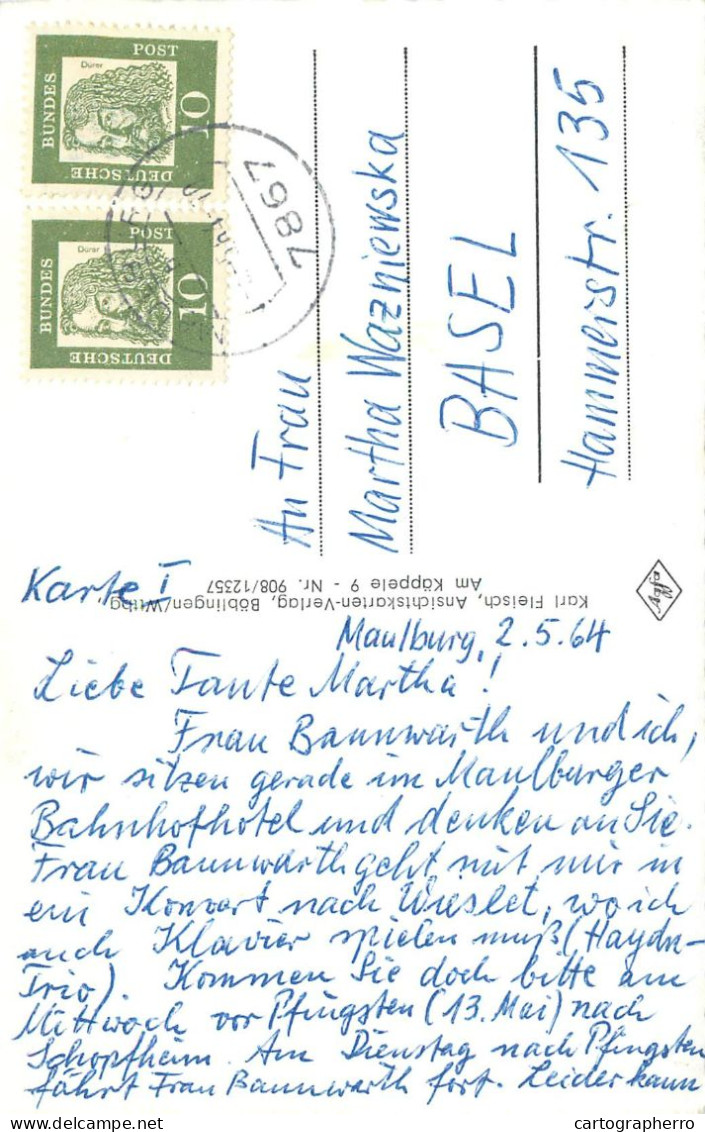 BUNDES
POST
Dürer
10
DEUTSCHE
BUNDES
POST
Dürer
10
DEUTSCHE
7867
An Frau
Martha Wazniewska
BASEL
Hammerstr. 135
Karl Fleisch, Ansichtskarten-Verlag, Böblingen/Wttbg
Am Käppele 9 - Nr. 908/12357
Agfa
Karte I
Maulburg, 2.5.64
Liebe Tante Martha!
Frau Bannwarth und ich,
wir sitzen gerade im Maulburger
Bahnhofhotel und denken an Sie.
Frau Bannwarth geht mit mir in
ein Konzert nach Wieslet, wo ich
auch Klavier spielen muß (Haydn-
Trio). Kommen Sie doch bitte am
Mittwoch vor Pfingsten (13. Mai) nach
Schopfheim. Am Dienstag nach Pfingsten
fährt Frau Bannwarth fort. Leider kann
cartographerro